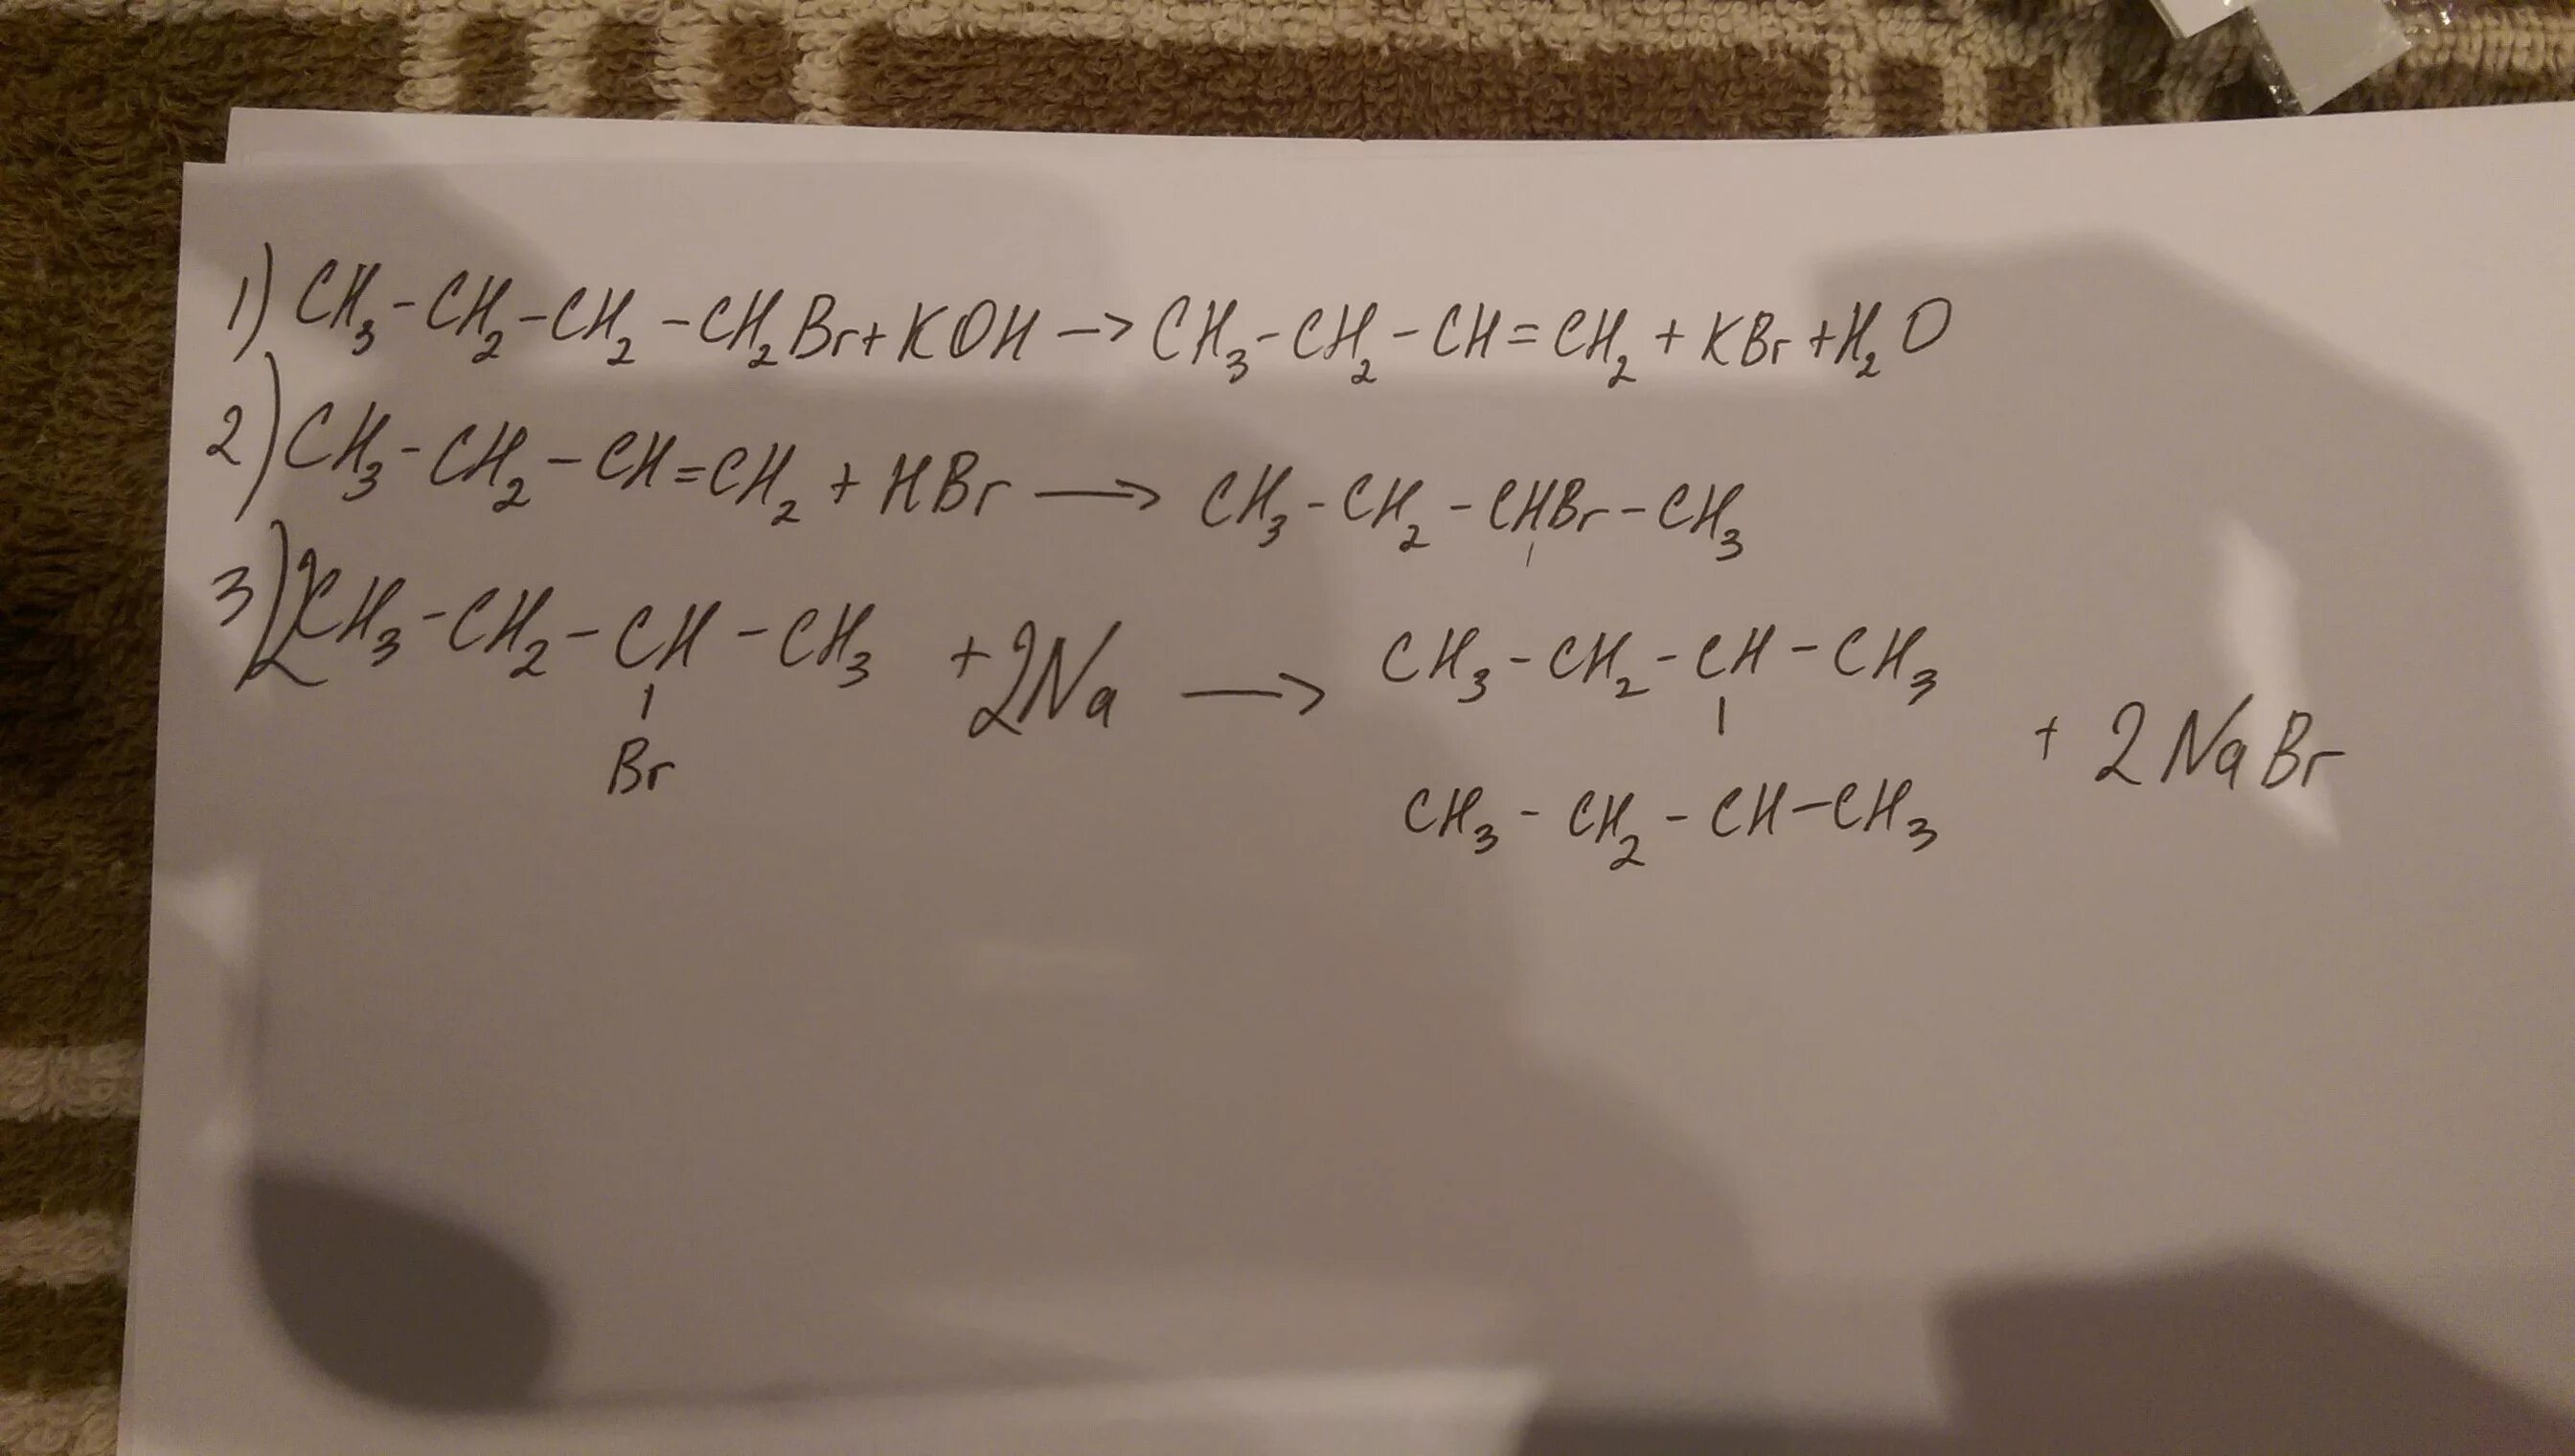 1) CH₃-CH₂-CH₂-CH₂Br+KOH -> CH₃-CH₂-CH=CH₂+KBr+H₂O
2) CH₃-CH₂-CH=CH₂+HBr -> CH₃-CH₂-CHBr-CH₃
3) 2CH₃-CH₂-CH-CH₃ +2Na -> CH₃-CH₂-CH-CH₃ + 2NaBr
| |
Br CH₃-CH₂-CH-CH₃